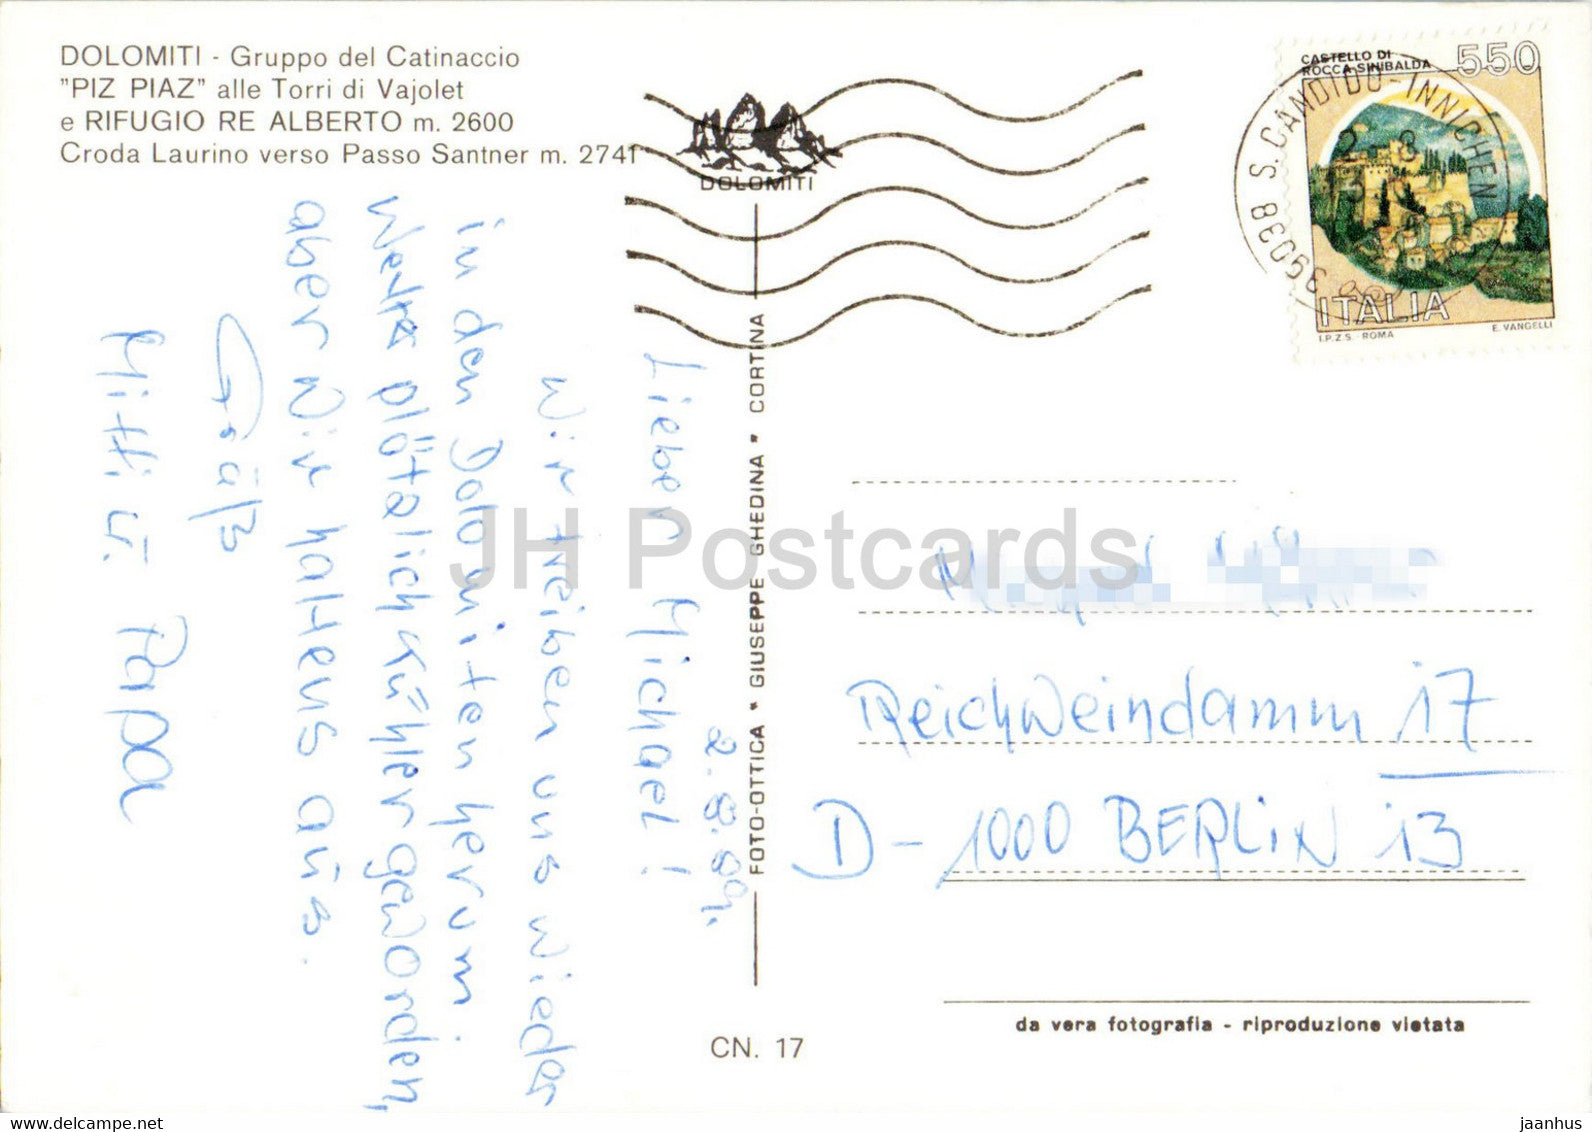 DOLOMITI - Gruppo del Catinaccio
"PIZ PIAZ" alle Torri di Vajolet
e RIFUGIO RE ALBERTO m. 2600
Croda Laurino verso Passo Santner m. 2741
DOLOMITI
CASTELLO DI
ROCCA SINIBALDA
550
ITALIA
I.P.Z.S. - ROMA
E. VANGELLI
39038 S. CANDIDO - INNICHEN
2.8.89.
Lieber Michael!
Wir treiben uns wieder
in den Dolomiten herum.
plötzlich kühler geworden,
aber wir haltens aus.
Gruß
Mutti u. Papa
FOTO-OTTICA * GIUSEPPE GHEDINA * CORTINA
Reichweindamm 17
D - 1000 BERLIN 13
da vera fotografia - riproduzione vietata
CN. 17
JH Postcards
www.delcampe.net
jaanhus